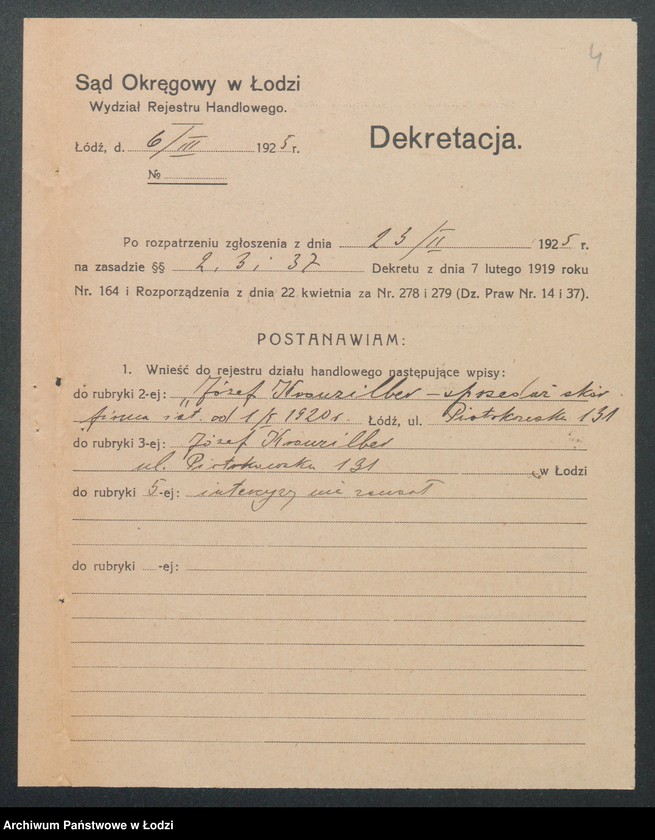 4
Sąd Okręgowy w Łodzi
Wydział Rejestru Handlowego.
Łódź, d. 6/III 1925 r.
Dekretacja.
№
Po rozpatrzeniu zgłoszenia z dnia 23/II 1925 r.
na zasadzie §§ 2, 3 i 37 Dekretu z dnia 7 lutego 1919 roku
Nr. 164 i Rozporządzenia z dnia 22 kwietnia za Nr. 278 i 279 (Dz. Praw Nr. 14 i 37).
POSTANAWIAM:
1. Wnieść do rejestru działu handlowego następujące wpisy:
do rubryki 2-ej: „Józef Kronzilber – sprzedaż skór
firma ist. od 1/X 1920 r. Łódź, ul. Piotrkowska 131
do rubryki 3-ej: Józef Kronzilber
ul. Piotrkowska 131 w Łodzi
do rubryki 5-ej: intercyzy nie zawarł
do rubryki -ej:
Archiwum Państwowe w Łodzi